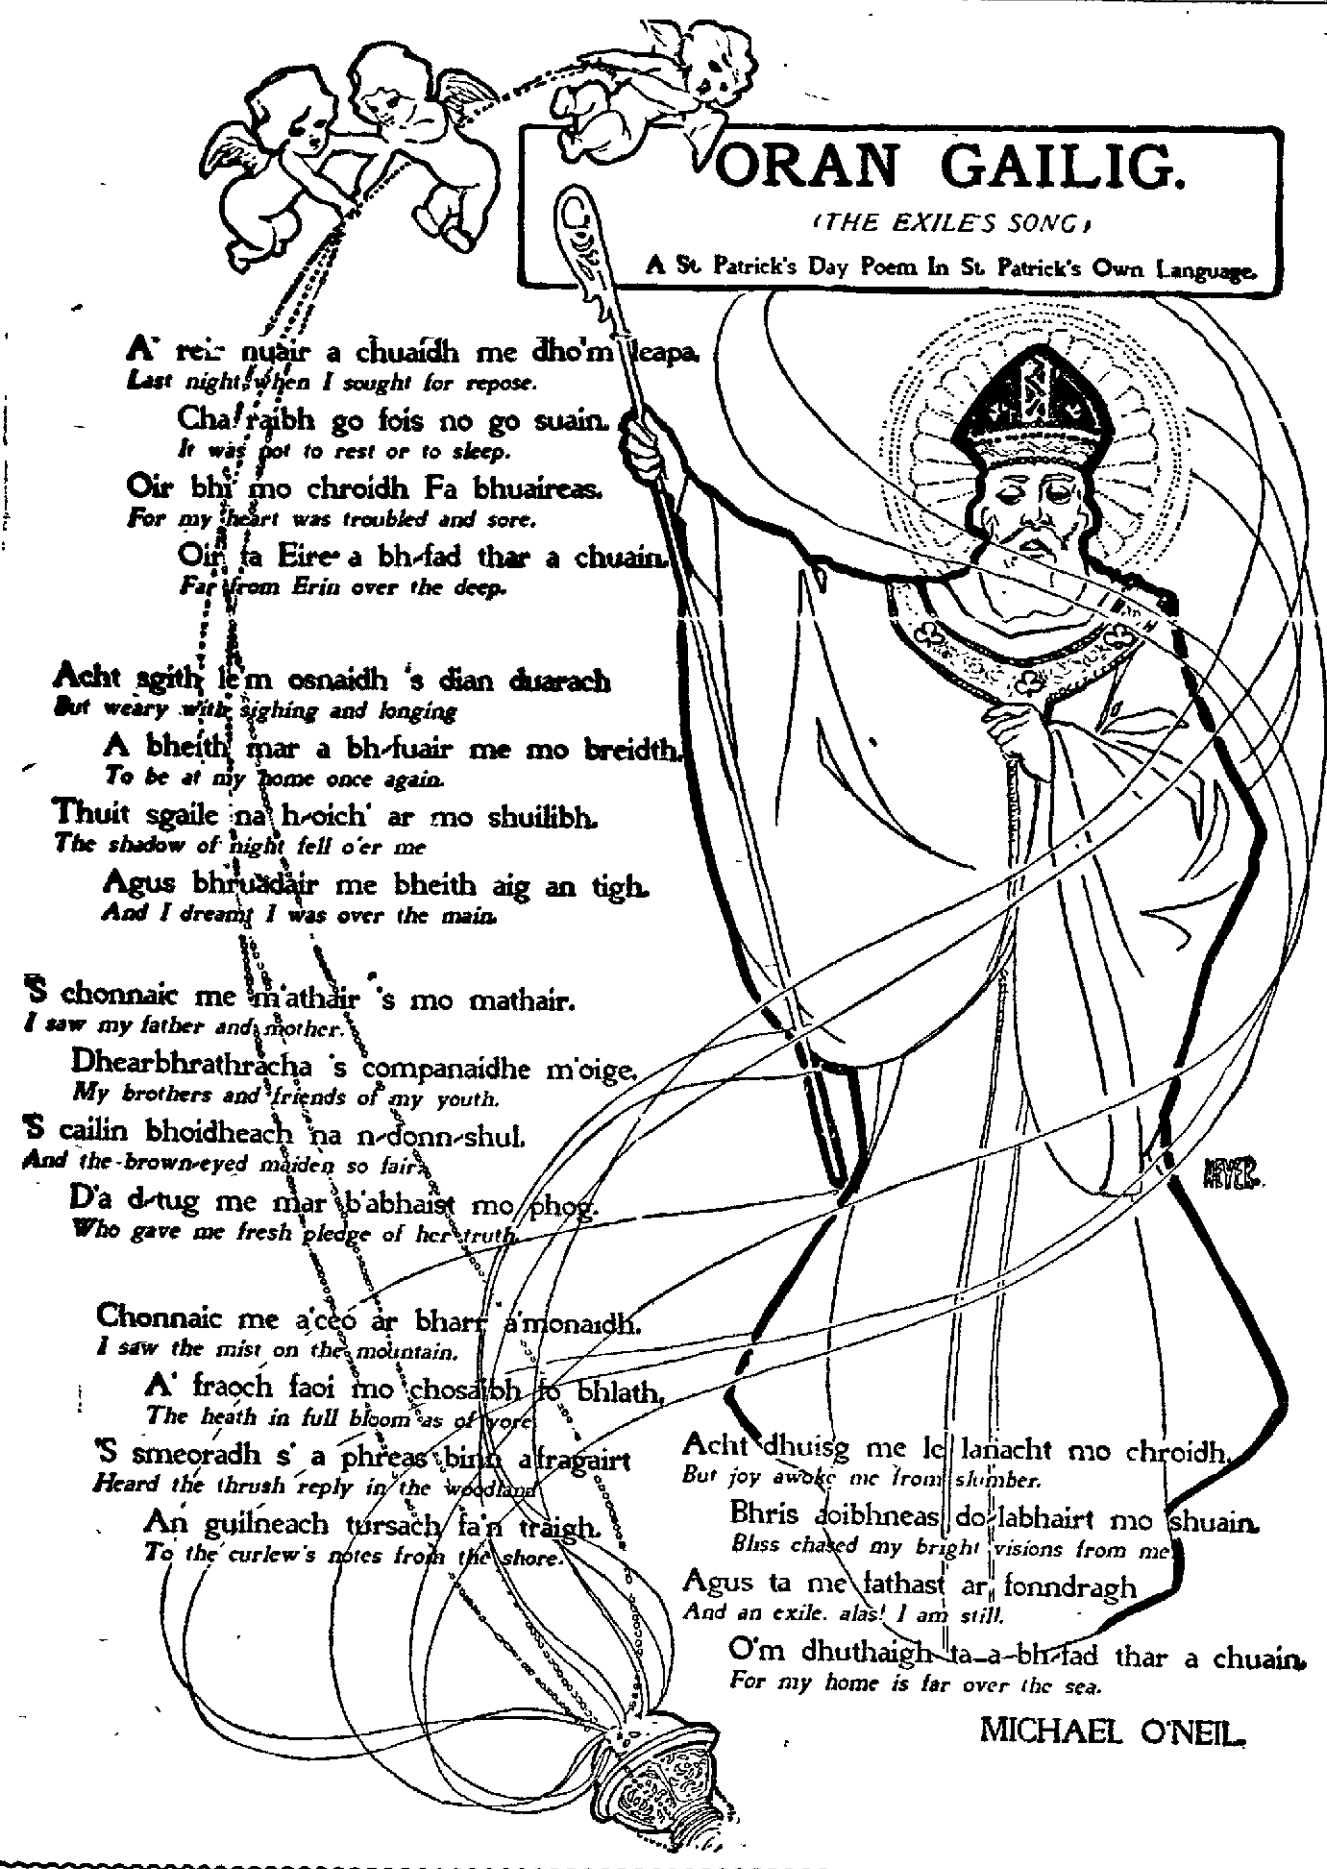 ORAN GAILIG.
(THE EXILE'S SONG)
A St. Patrick's Day Poem In St. Patrick's Own Language.
A' reir nuair a chuaidh me dho'm leapa.
Last night, when I sought for repose.
Cha raibh go fois no go suain.
It was not to rest or to sleep.
Oir bhi mo chroidh Fa bhuaireas.
For my heart was troubled and sore.
Oir ta Eire a bh-fad thar a chuain.
Far from Erin over the deep.
Acht sgith le'm osnaidh 's dian duarach
But weary with sighing and longing
A bheith mar a bh-fuair me mo breidth.
To be at my home once again.
Thuit sgaile na h-oich' ar mo shuilibh.
The shadow of night fell o'er me
Agus bhruadair me bheith aig an tigh.
And I dreamt I was over the main.
'S chonnaic me m'athair 's mo mathair.
I saw my father and mother.
Dhearbhrathracha 's companaidhe m'oige.
My brothers and friends of my youth.
'S cailin bhoidheach na n-donn-shul.
And the brown-eyed maiden so fair.
D'a d-tug me mar b'abhaist mo phog.
Who gave me fresh pledge of her truth.
Chonnaic me a'ceo ar bharr a'monaidh.
I saw the mist on the mountain.
A' fraoch faoi mo chosaibh fo bhlath.
The heath in full bloom as of yore
'S smeoradh s' a phreas binn a fragairt
Heard the thrush reply in the woodland
An guilneach tursach fa'n traigh.
To the curlew's notes from the shore.
Acht dhuisg me le lanacht mo chroidh.
But joy awoke me from slumber.
Bhris aoibhneas do labhairt mo shuain.
Bliss chased my bright visions from me
Agus ta me fathast ar fonndragh
And an exile. alas! I am still.
O'm dhuthaigh ta-a-bh-fad thar a chuain.
For my home is far over the sea.
MICHAEL O'NEIL.
MEYER.